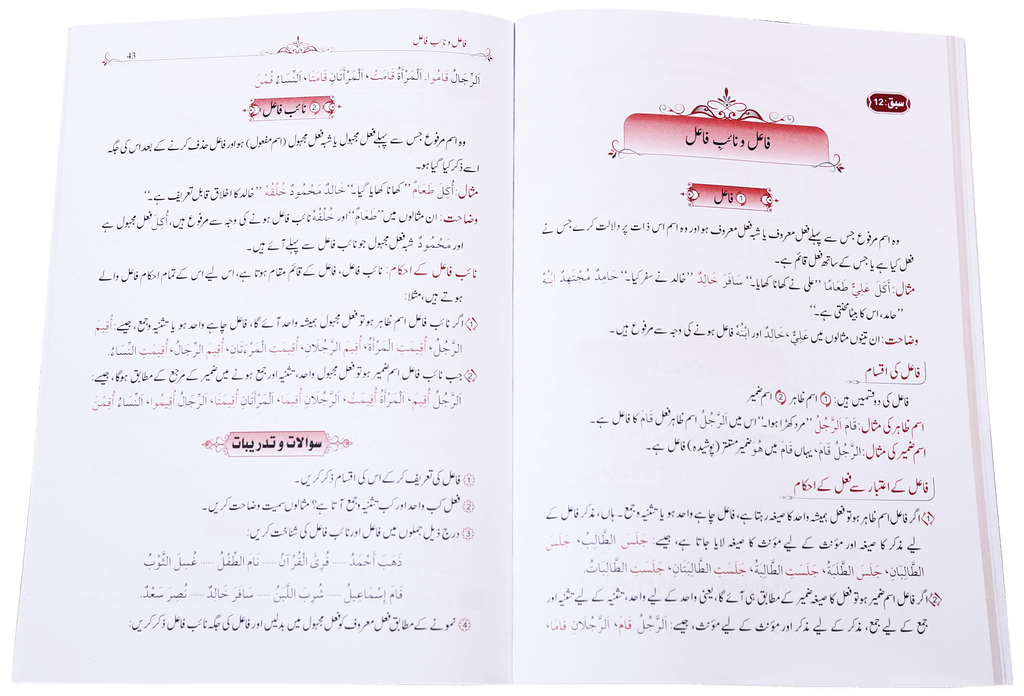 سبق: 12
فاعل و نائبِ فاعل
① فاعل
وہ اسم مرفوع جس سے پہلے فعل معروف یا شبہ فعل معروف ہو اور وہ اسم اس ذات پر دلالت کرے جس نے
فعل کیا ہے یا جس کے ساتھ فعل قائم ہے۔
مثال: أَكَلَ عَلِيٌّ طَعَامًا ’’علی نے کھانا کھایا۔‘‘ سَافَرَ خَالِدٌ ’’خالد نے سفر کیا۔‘‘ حَامِدٌ مُجْتَهِدٌ ابْنُهُ
’’حامد، اس کا بیٹا محنتی ہے۔‘‘
وضاحت: ان تینوں مثالوں میں عَلِيٌّ، خَالِدٌ اور ابْنُهُ فاعل ہونے کی وجہ سے مرفوع ہیں۔
فاعل کی اقسام
فاعل کی دو قسمیں ہیں: ① اسم ظاہر ② اسم ضمیر
اسم ظاہر کی مثال: قَامَ الرَّجُلُ ’’مرد کھڑا ہوا۔‘‘ اس میں الرَّجُلُ اسم ظاہر فعل قَامَ کا فاعل ہے۔
اسم ضمیر کی مثال: الرَّجُلُ قَامَ، یہاں قَامَ میں هُوَ ضمیر مستتر (پوشیدہ) فاعل ہے۔
فاعل کے اعتبار سے فعل کے احکام
① اگر فاعل اسم ظاہر ہو تو فعل ہمیشہ واحد کا صیغہ رہتا ہے، فاعل چاہے واحد ہو یا تثنیہ و جمع۔ ہاں، مذکر فاعل کے
لیے مذکر کا صیغہ اور مؤنث کے لیے مؤنث کا صیغہ لایا جاتا ہے، جیسے: جَلَسَ الطَّالِبُ، جَلَسَ
الطَّالِبَانِ، جَلَسَ الطَّلَبَةُ، جَلَسَتِ الطَّالِبَةُ، جَلَسَتِ الطَّالِبَتَانِ، جَلَسَتِ الطَّالِبَاتُ.
② اگر فاعل اسم ضمیر ہو تو فعل کا صیغہ ضمیر کے مطابق ہی آئے گا، یعنی واحد کے لیے واحد، تثنیہ کے لیے تثنیہ اور
جمع کے لیے جمع، مذکر کے لیے مذکر اور مؤنث کے لیے مؤنث، جیسے: اَلرَّجُلُ قَامَ، اَلرَّجُلَانِ قَامَا،
فاعل و نائب فاعل
43
اَلرِّجَالُ قَامُوا. اَلْمَرْأَةُ قَامَتْ، اَلْمَرْأَتَانِ قَامَتَا، اَلنِّسَاءُ قُمْنَ
② نائب فاعل
وہ اسم مرفوع جس سے پہلے فعل مجہول یا شبہ فعل مجہول (اسم مفعول) ہو اور فاعل حذف کرنے کے بعد اس کی جگہ
اسے ذکر کیا گیا ہو۔
مثال: أُكِلَ طَعَامٌ ’’کھانا کھایا گیا۔‘‘ خَالِدٌ مَحْمُودٌ خُلُقُهُ ’’خالد کا اخلاق قابل تعریف ہے۔‘‘
وضاحت: ان مثالوں میں ’’طَعَامٌ‘‘ اور خُلُقُهُ نائب فاعل ہونے کی وجہ سے مرفوع ہیں، أُكِلَ فعل مجہول ہے
اور مَحْمُودٌ شبہ فعل مجہول جو نائب فاعل سے پہلے آئے ہیں۔
نائب فاعل کے احکام: نائب فاعل، فاعل کے قائم مقام ہوتا ہے، اس لیے اس کے تمام احکام فاعل والے
ہوتے ہیں، مثلاً:
① اگر نائب فاعل اسم ظاہر ہو تو فعل مجہول ہمیشہ واحد آئے گا، فاعل چاہے واحد ہو یا تثنیہ و جمع، جیسے: أُقِيمَ
الرَّجُلُ، أُقِيمَتِ الْمَرْأَةُ، أُقِيمَ الرَّجُلَانِ، أُقِيمَتِ الْمَرْءَتَانِ، أُقِيمَ الرِّجَالُ، أُقِيمَتِ النِّسَاءُ.
② جب نائب فاعل اسم ضمیر ہو تو فعل مجہول واحد، تثنیہ اور جمع ہونے میں ضمیر کے مرجع کے مطابق ہوگا، جیسے:
اَلرَّجُلُ أُقِيمَ، اَلْمَرْأَةُ أُقِيمَتْ، اَلرَّجُلَانِ أُقِيمَا، اَلْمَرْأَتَانِ أُقِيمَتَا، اَلرِّجَالُ أُقِيمُوا، اَلنِّسَاءُ أُقِمْنَ
سوالات و تدریبات
① فاعل کی تعریف کر کے اس کی اقسام ذکر کریں۔
② فعل کب واحد اور کب تثنیہ و جمع آتا ہے؟ مثالوں سمیت وضاحت کریں۔
③ درج ذیل جملوں میں فاعل اور نائب فاعل کی شناخت کریں:
ذَهَبَ أَحْمَدُ ..... قُرِئَ الْقُرْآنُ ..... نَامَ الطِّفْلُ ..... غُسِلَ الثَّوْبُ
قَامَ إِسْمَاعِيلُ ..... شُرِبَ اللَّبَنُ ..... سَافَرَ خَالِدٌ ..... نُصِرَ سَعْدٌ.
④ نمونے کے مطابق فعل معروف کو فعل مجہول میں بدلیں اور فاعل کی جگہ نائب فاعل ذکر کریں: